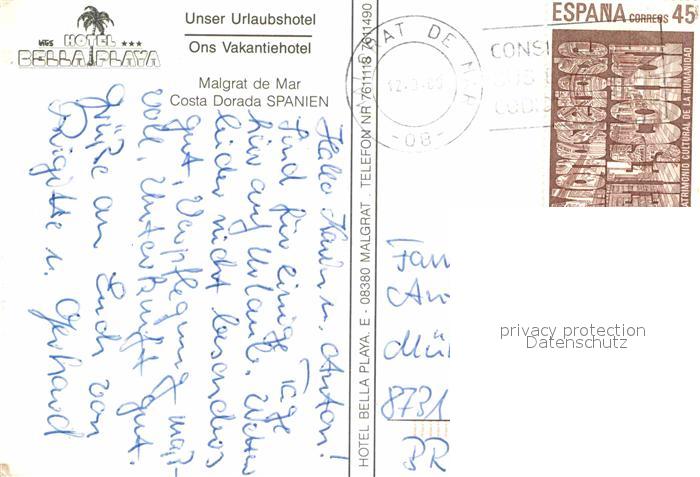 Unser Urlaubshotel
Ons Vakantiehotel
Malgrat de Mar
Costa Dorada SPANIEN
HOTEL ***
BELLA PLAYA
Hallo Karin u. Anton!
Sind für einige Tage
hier auf Urlaub. Wetter
leider nicht besonders
gut, Verpflegung maß-
voll, Unterkunft gut.
Grüße an Euch von
Brigitte u. Gerhard
HOTEL BELLA PLAYA. E - 08380 MALGRAT - TELEFON NR 7611118 7611490
MALGRAT DE MAR
-08-
CONSI
ESPAÑA CORREOS 45
PATRIMONIO CULTURAL DE LA HUMANIDAD
Fam
An
Mül
8731
BR
privacy protection
Datenschutz